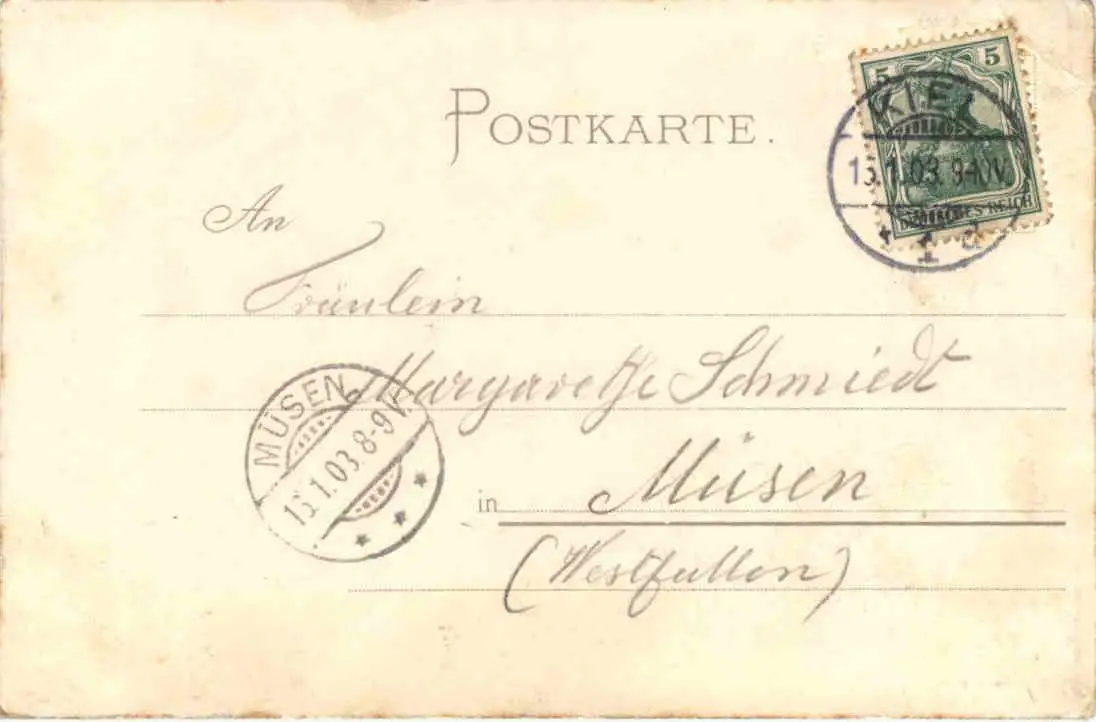 POSTKARTE.
5 5
KIEL
1.03. 9-10V.
DEUTSCHES REICH
1 a
An
Fräulein
Margarethe Schmiedt
MÜSEN
1.03. 8-9V.
in Müsen
(Westfallen)